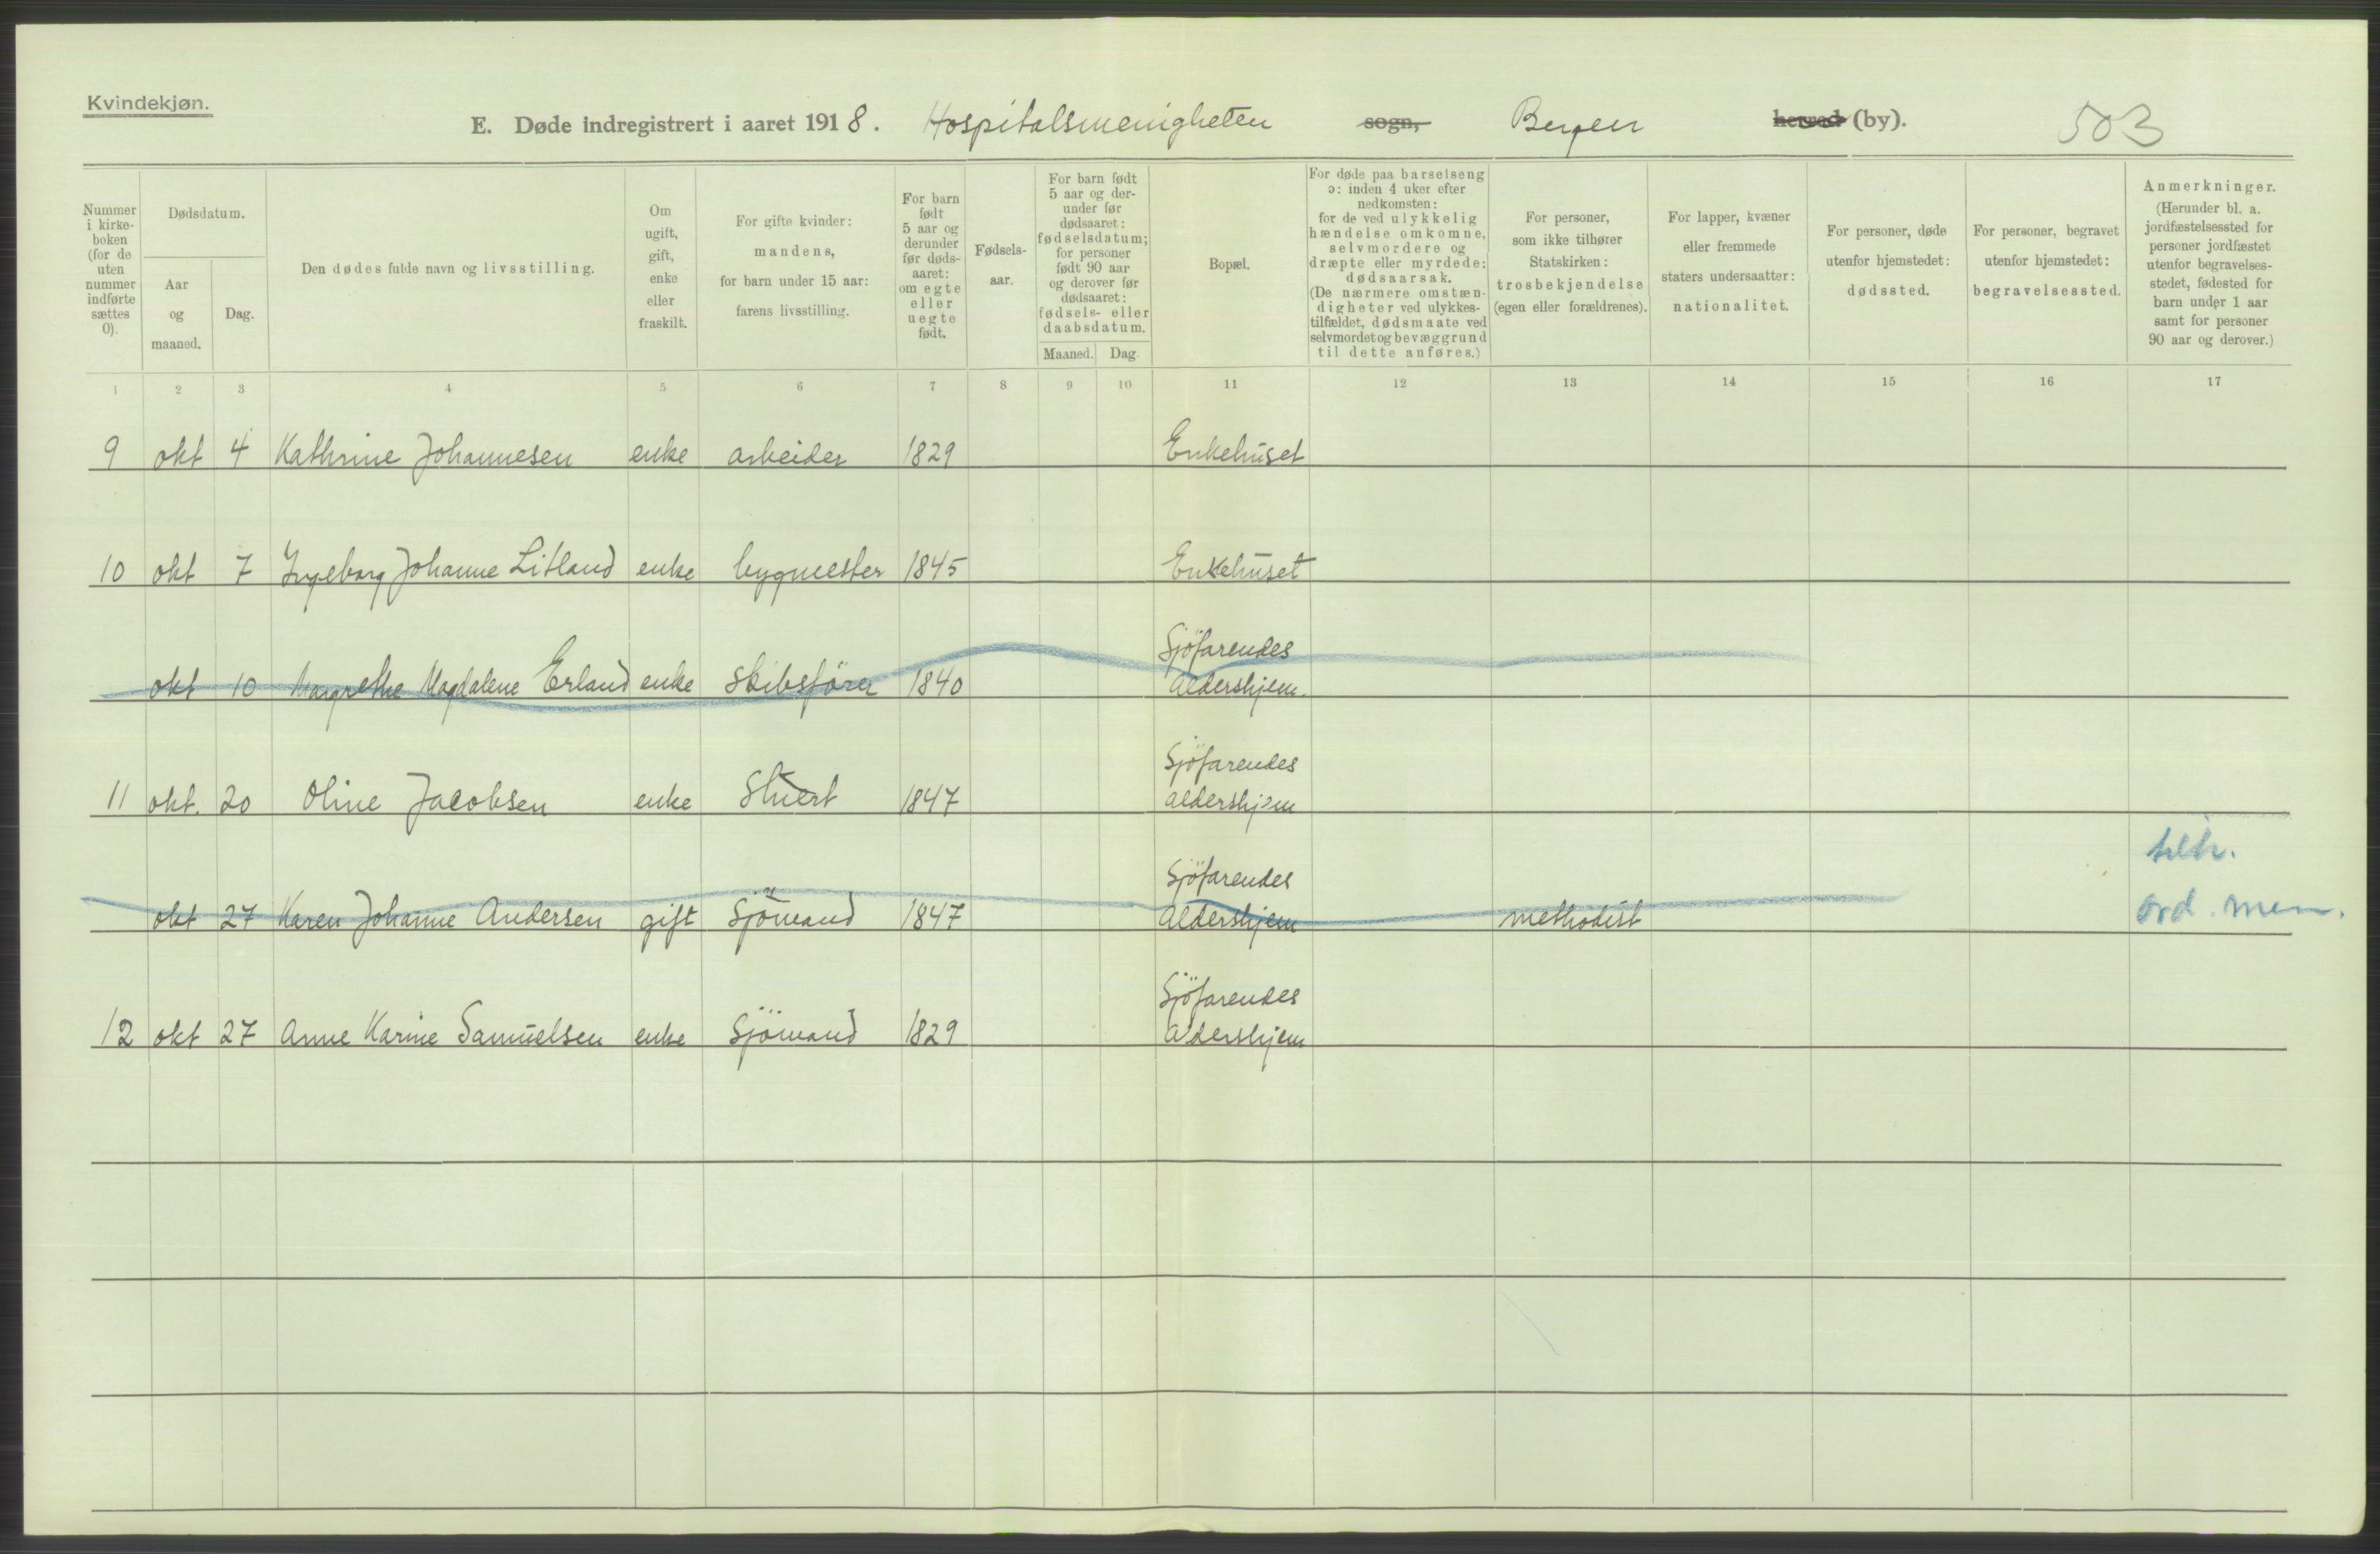 Kvindekjøn.
E. Døde indregistrert i aaret 1918. Hospitalsmenigheten sogn, Bergen herred (by). 503
Nummer i kirke-boken (for de uten nummer indførte sættes 0).
Dødsdatum.
Aar og maaned.
Dag.
Den dødes fulde navn og livsstilling.
Om ugift, gift, enke eller fraskilt.
For gifte kvinder: mandens, for barn under 15 aar: farens livsstilling.
For barn født 5 aar og derunder før døds-aaret: om egte eller uegte født.
Fødsels-aar.
For barn født 5 aar og der-under før dødsaaret: fødselsdatum; for personer født 90 aar og derover før dødsaaret: fødsels- eller daabsdatum.
Maaned. Dag.
Bopæl.
For døde paa barselseng ɔ: inden 4 uker efter nedkomsten: for de ved ulykkelig hændelse omkomne, selvmordere og dræpte eller myrdede: dødsaarsak. (De nærmere omstæn-digheter ved ulykkes-tilfældet, dødsmaate ved selvmordet og bevæggrund til dette anføres.)
For personer, som ikke tilhører Statskirken: trosbekjendelse (egen eller forældrenes).
For lapper, kvæner eller fremmede staters undersaatter: nationalitet.
For personer, døde utenfor hjemstedet: dødssted.
For personer, begravet utenfor hjemstedet: begravelsessted.
Anmerkninger. (Herunder bl. a. jordfæstelsessted for personer jordfæstet utenfor begravelses-stedet, fødested for barn under 1 aar samt for personer 90 aar og derover.)
1 2 3 4 5 6 7 8 9 10 11 12 13 14 15 16 17
9 okt 4 Kathrine Johannesen enke arbeider 1829 Enkehuset
10 okt 7 Ingeborg Johanne Litland enke bygmester 1845 Enkehuset
okt 10 Margrethe Magdalene Erland enke skibsförer 1840 Sjöfarendes
Aldershjem.
11 okt. 20 Oline Jacobsen enke Stuert 1847 Sjöfarendes
aldershjem
okt 27 Karen Johanne Andersen gift Sjömand 1847 Sjöfarendes
Aldershjem methodist
ord. men.
12 okt 27 Anne Karine Samuelsen enke Sjömand 1829 Sjöfarendes
Aldershjem